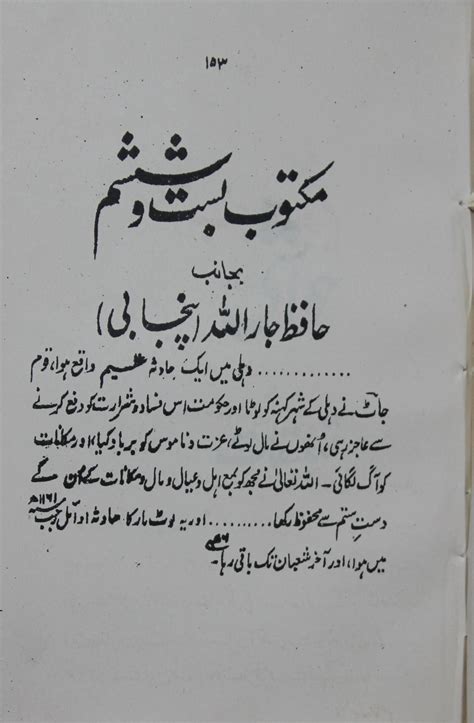 ۱۵۳
مکتوب بست و ششم
بجانب
حافظ جار اللہ (پنجابی)
............. دہلی میں ایک حادثہ عظیم واقع ہوا، قوم
جاٹ نے دہلی کے شہر کہنہ کو لوٹا اور حکومت اس فساد و شرارت کو دفع کرنے
سے عاجز رہی، اُنھوں نے مال لوٹے، عزت و ناموس کو برباد کیا، اور مکانات
کو آگ لگائی۔ اللہ تعالیٰ نے مجھ کو بمع اہل و عیال و مال و مکانات کے ان کے
دستِ ستم سے محفوظ رکھا۔ ......... اور یہ لوٹ مار کا حادثہ اوائل رجب سنہ ۱۱۶۱ھ
میں ہوا، اور آخر شعبان تک باقی رہا۔